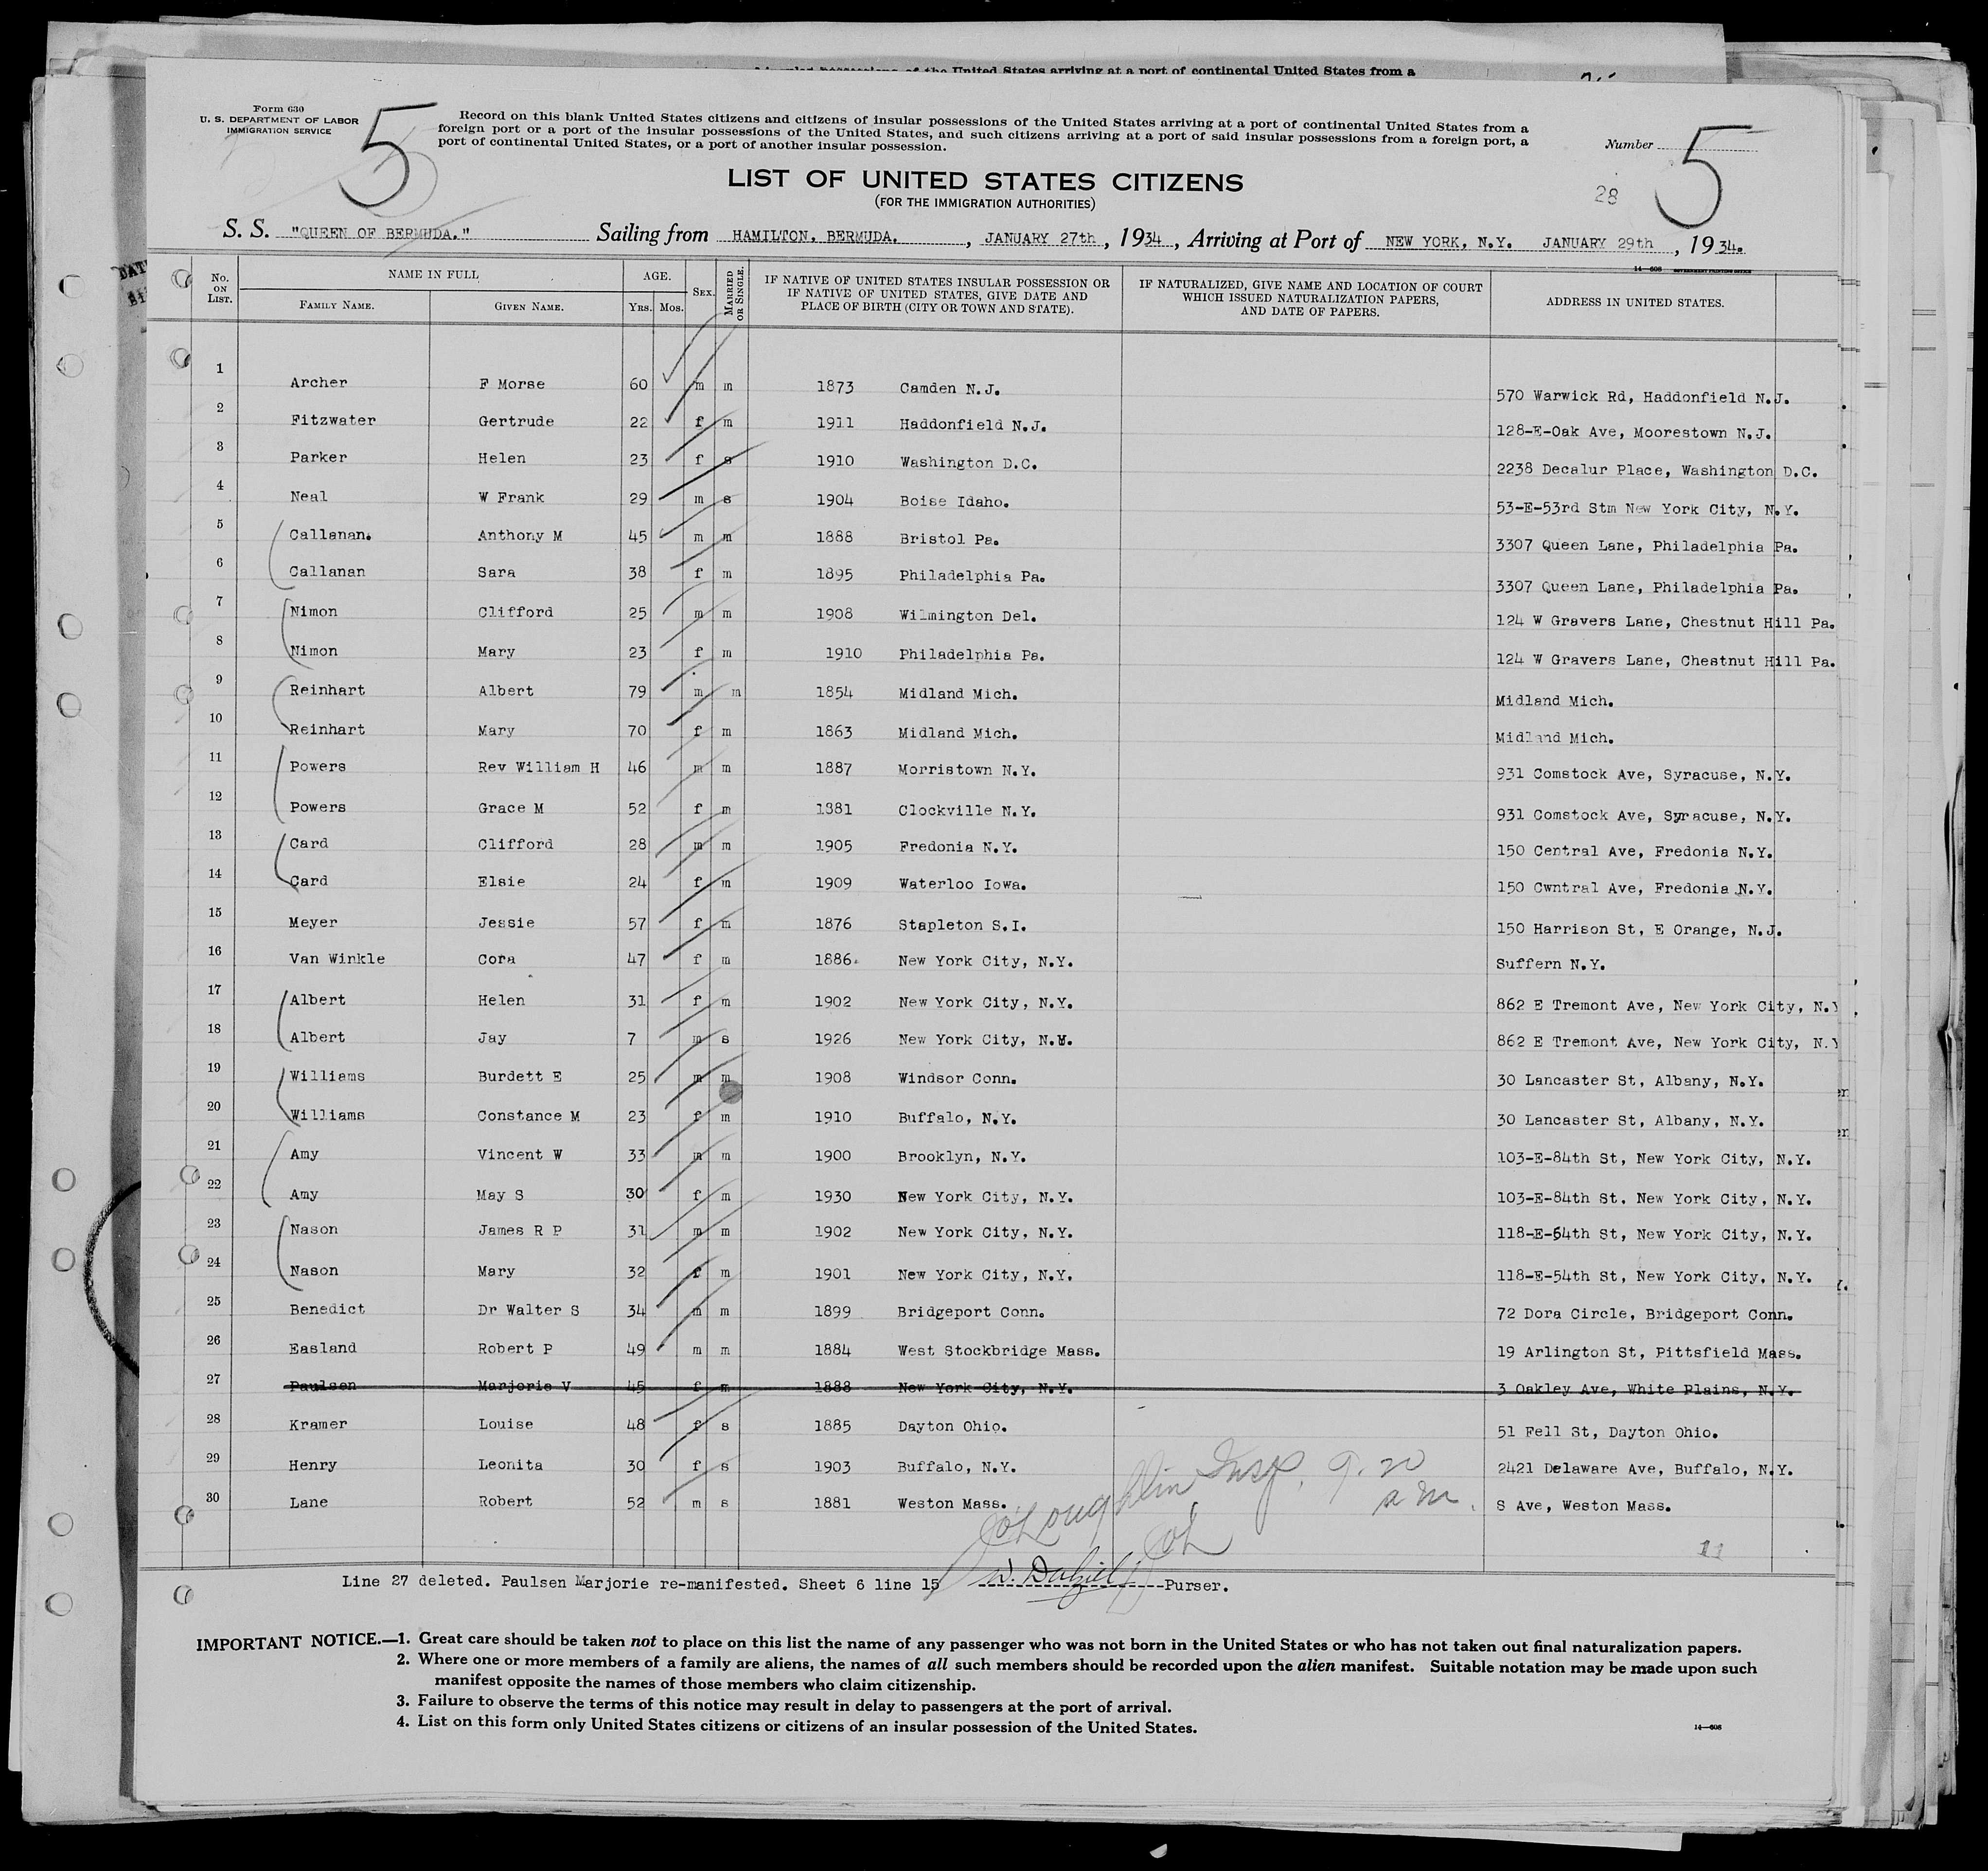 Form 630
U. S. DEPARTMENT OF LABOR
IMMIGRATION SERVICE
5
Record on this blank United States citizens and citizens of insular possessions of the United States arriving at a port of continental United States from a
foreign port or a port of the insular possessions of the United States, and such citizens arriving at a port of said insular possessions from a foreign port, a
port of continental United States, or a port of another insular possession.
Number 5
28
LIST OF UNITED STATES CITIZENS
(FOR THE IMMIGRATION AUTHORITIES)
S. S. "QUEEN OF BERMUDA." Sailing from HAMILTON, BERMUDA. , JANUARY 27th , 1934 , Arriving at Port of NEW YORK, N.Y. JANUARY 29th , 1934.
14—608 GOVERNMENT PRINTING OFFICE
No. ON LIST. NAME IN FULL FAMILY NAME. GIVEN NAME. AGE. Yrs. Mos. SEX. MARRIED OR SINGLE. IF NATIVE OF UNITED STATES INSULAR POSSESSION OR IF NATIVE OF UNITED STATES, GIVE DATE AND PLACE OF BIRTH (CITY OR TOWN AND STATE). IF NATURALIZED, GIVE NAME AND LOCATION OF COURT WHICH ISSUED NATURALIZATION PAPERS, AND DATE OF PAPERS. ADDRESS IN UNITED STATES.
1 Archer F Morse 60 m m 1873 Camden N.J. 570 Warwick Rd, Haddonfield N.J.
2 Fitzwater Gertrude 22 f m 1911 Haddonfield N.J. 128-E-Oak Ave, Moorestown N.J.
3 Parker Helen 23 f s 1910 Washington D.C. 2238 Decalur Place, Washington D.C.
4 Neal W Frank 29 m s 1904 Boise Idaho. 53-E-53rd Stm New York City, N.Y.
5 Callanan. Anthony M 45 m m 1888 Bristol Pa. 3307 Queen Lane, Philadelphia Pa.
6 Callanan Sara 38 f m 1895 Philadelphia Pa. 3307 Queen Lane, Philadelphia Pa.
7 Nimon Clifford 25 m m 1908 Wilmington Del. 124 W Gravers Lane, Chestnut Hill Pa.
8 Nimon Mary 23 f m 1910 Philadelphia Pa. 124 W Gravers Lane, Chestnut Hill Pa.
9 Reinhart Albert 79 m m 1854 Midland Mich. Midland Mich.
10 Reinhart Mary 70 f m 1863 Midland Mich. Midland Mich.
11 Powers Rev William H 46 m m 1887 Morristown N.Y. 931 Comstock Ave, Syracuse, N.Y.
12 Powers Grace M 52 f m 1881 Clockville N.Y. 931 Comstock Ave, Syracuse, N.Y.
13 Card Clifford 28 m m 1905 Fredonia N.Y. 150 Central Ave, Fredonia N.Y.
14 Card Elsie 24 f m 1909 Waterloo Iowa. 150 Cwntral Ave, Fredonia N.Y.
15 Meyer Jessie 57 f m 1876 Stapleton S.I. 150 Harrison St, E Orange, N.J.
16 Van Winkle Cora 47 f m 1886. New York City, N.Y. Suffern N.Y.
17 Albert Helen 31 f m 1902 New York City, N.Y. 862 E Tremont Ave, New York City, N.Y
18 Albert Jay 7 m s 1926 New York City, N.Y. 862 E Tremont Ave, New York City, N.Y
19 Williams Burdett E 25 m m 1908 Windsor Conn. 30 Lancaster St, Albany, N.Y.
20 Williams Constance M 23 f m 1910 Buffalo, N.Y. 30 Lancaster St, Albany, N.Y.
21 Amy Vincent W 33 m m 1900 Brooklyn, N.Y. 103-E-84th St, New York City, N.Y.
22 Amy May S 30 f m 1930 New York City, N.Y. 103-E-84th St. New York City, N.Y.
23 Nason James R P 31 m m 1902 New York City, N.Y. 118-E-54th St, New York City, N.Y.
24 Nason Mary 32 f m 1901 New York City, N.Y. 118-E-54th St, New York City, N.Y.
25 Benedict Dr Walter S 34 m m 1899 Bridgeport Conn. 72 Dora Circle, Bridgeport Conn.
26 Easland Robert P 49 m m 1884 West Stockbridge Mass. 19 Arlington St, Pittsfield Mass.
27 Paulsen Marjorie V 45 f m 1888 New York City, N.Y. 3 Oakley Ave, White Plains, N.Y.
28 Kramer Louise 48 f s 1885 Dayton Ohio. 51 Fell St, Dayton Ohio.
29 Henry Leonita 30 f s 1903 Buffalo, N.Y. 2421 Delaware Ave, Buffalo, N.Y.
30 Lane Robert 52 m s 1881 Weston Mass. S Ave, Weston Mass.
11
Line 27 deleted. Paulsen Marjorie re-manifested. Sheet 6 line 15 W. Dalziel Purser.
IMPORTANT NOTICE.—1. Great care should be taken not to place on this list the name of any passenger who was not born in the United States or who has not taken out final naturalization papers.
2. Where one or more members of a family are aliens, the names of all such members should be recorded upon the alien manifest. Suitable notation may be made upon such
manifest opposite the names of those members who claim citizenship.
3. Failure to observe the terms of this notice may result in delay to passengers at the port of arrival.
4. List on this form only United States citizens or citizens of an insular possession of the United States.
14—608